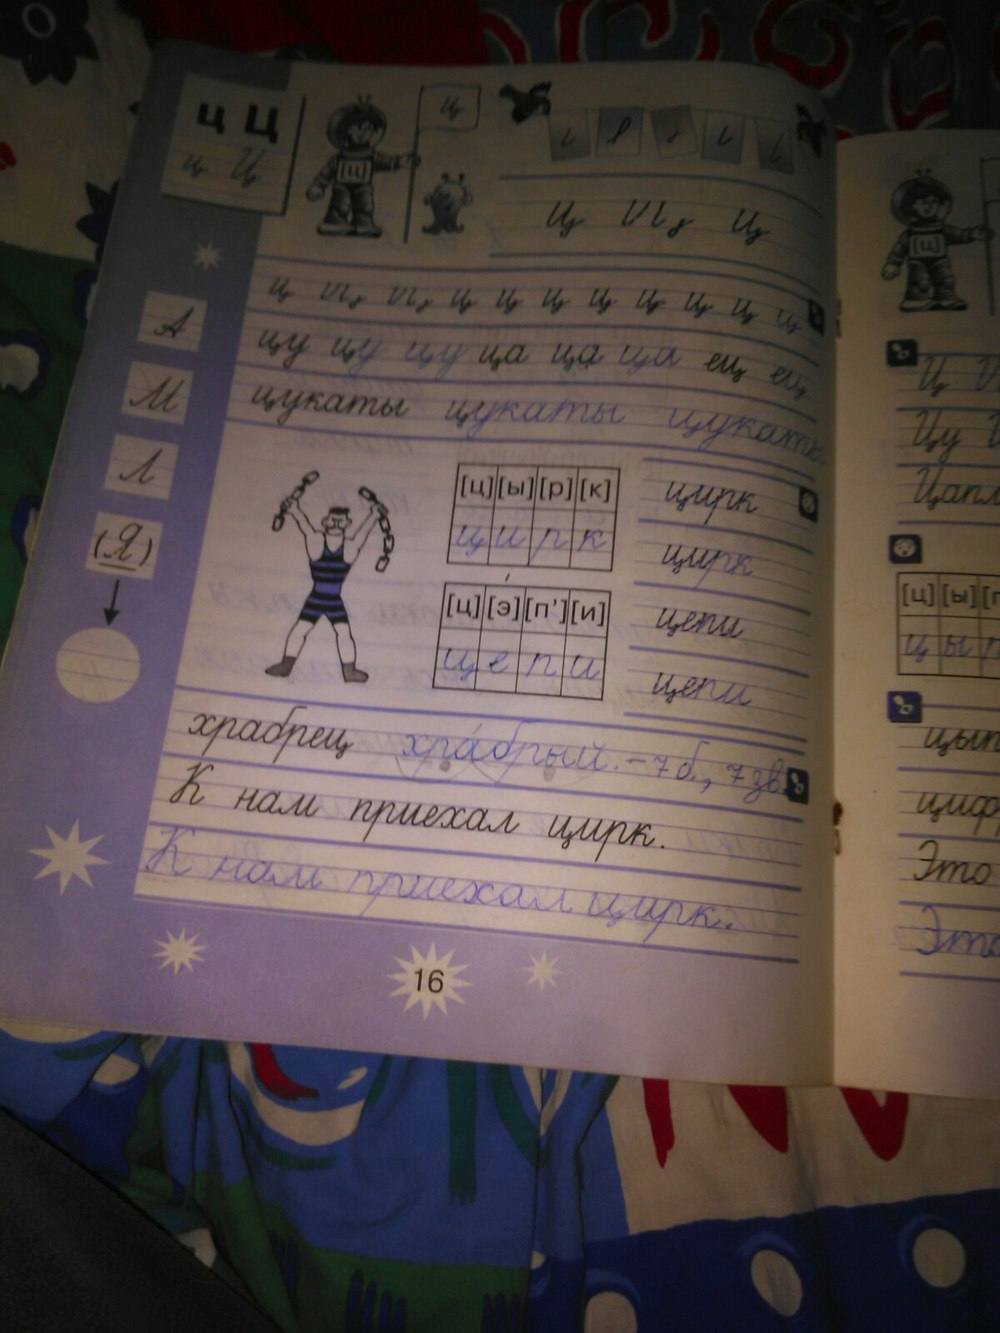 ц Ц
ц Ц
[ц]
ц
ц ц
ц ц ц ц ц ц ц ц ц
цу цу цу ца ца ца ец ец
цукаты цукаты цукаты
А
М
Л
(Я)
[ц] [ы] [р] [к]
ц и р к
цирк
цирк
[ц] [э́] [п'] [и]
ц е п и
цепи
цепи
храбрец хра́брый. – 7 б., 7 зв.
К нам приехал цирк.
К нам приехал цирк.
16
[ц]
Ц
Цу
[ц] [ы]
ц ы
Это
Это